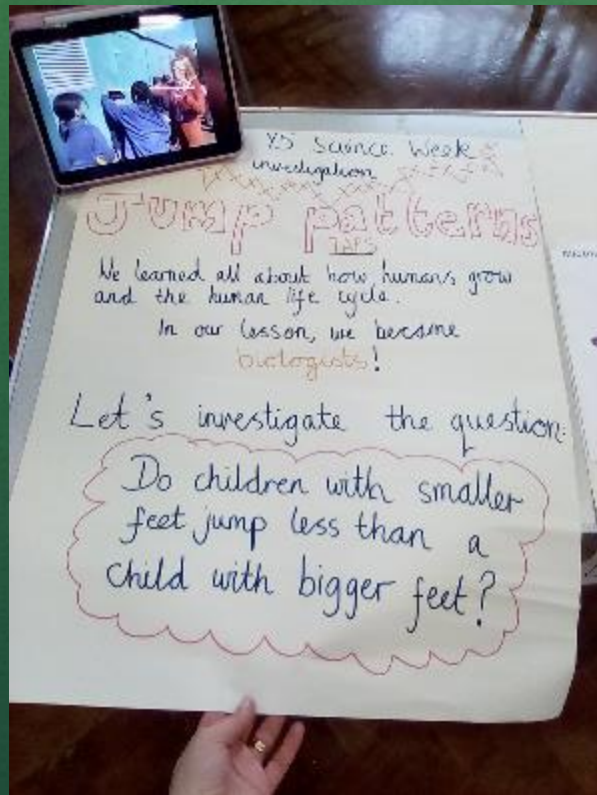 Y5 Science Week
investigation
Jump patterns
TAPS
We learned all about how humans grow
and the human life cycle.
In our lesson, we became
biologists!
Let's investigate the question:
Do children with smaller
feet jump less than a
child with bigger feet?